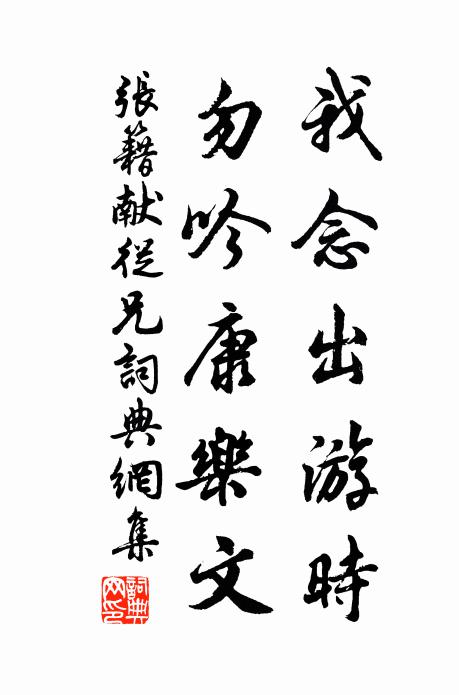 我念出游時
勿吟康樂文
張籍献從兄詞典網集
詞典網印